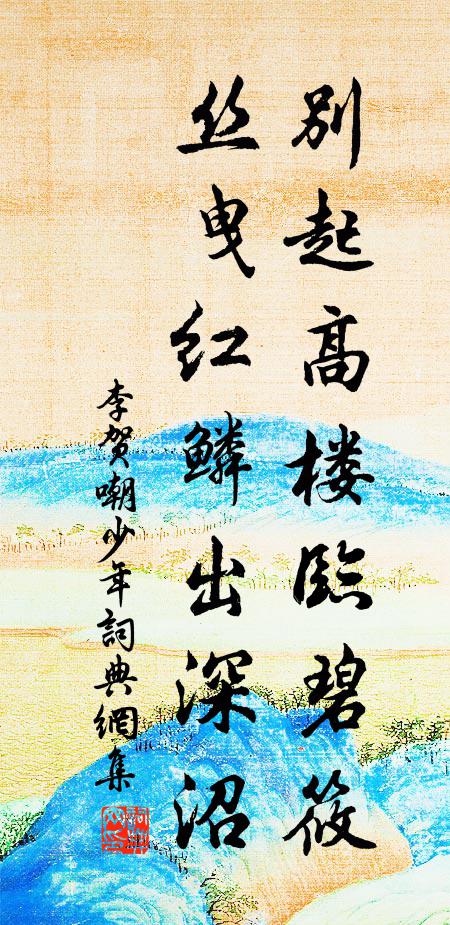 别起高楼临碧筱
丝曳红鳞出深沼
李贺嘲少年詞典網集